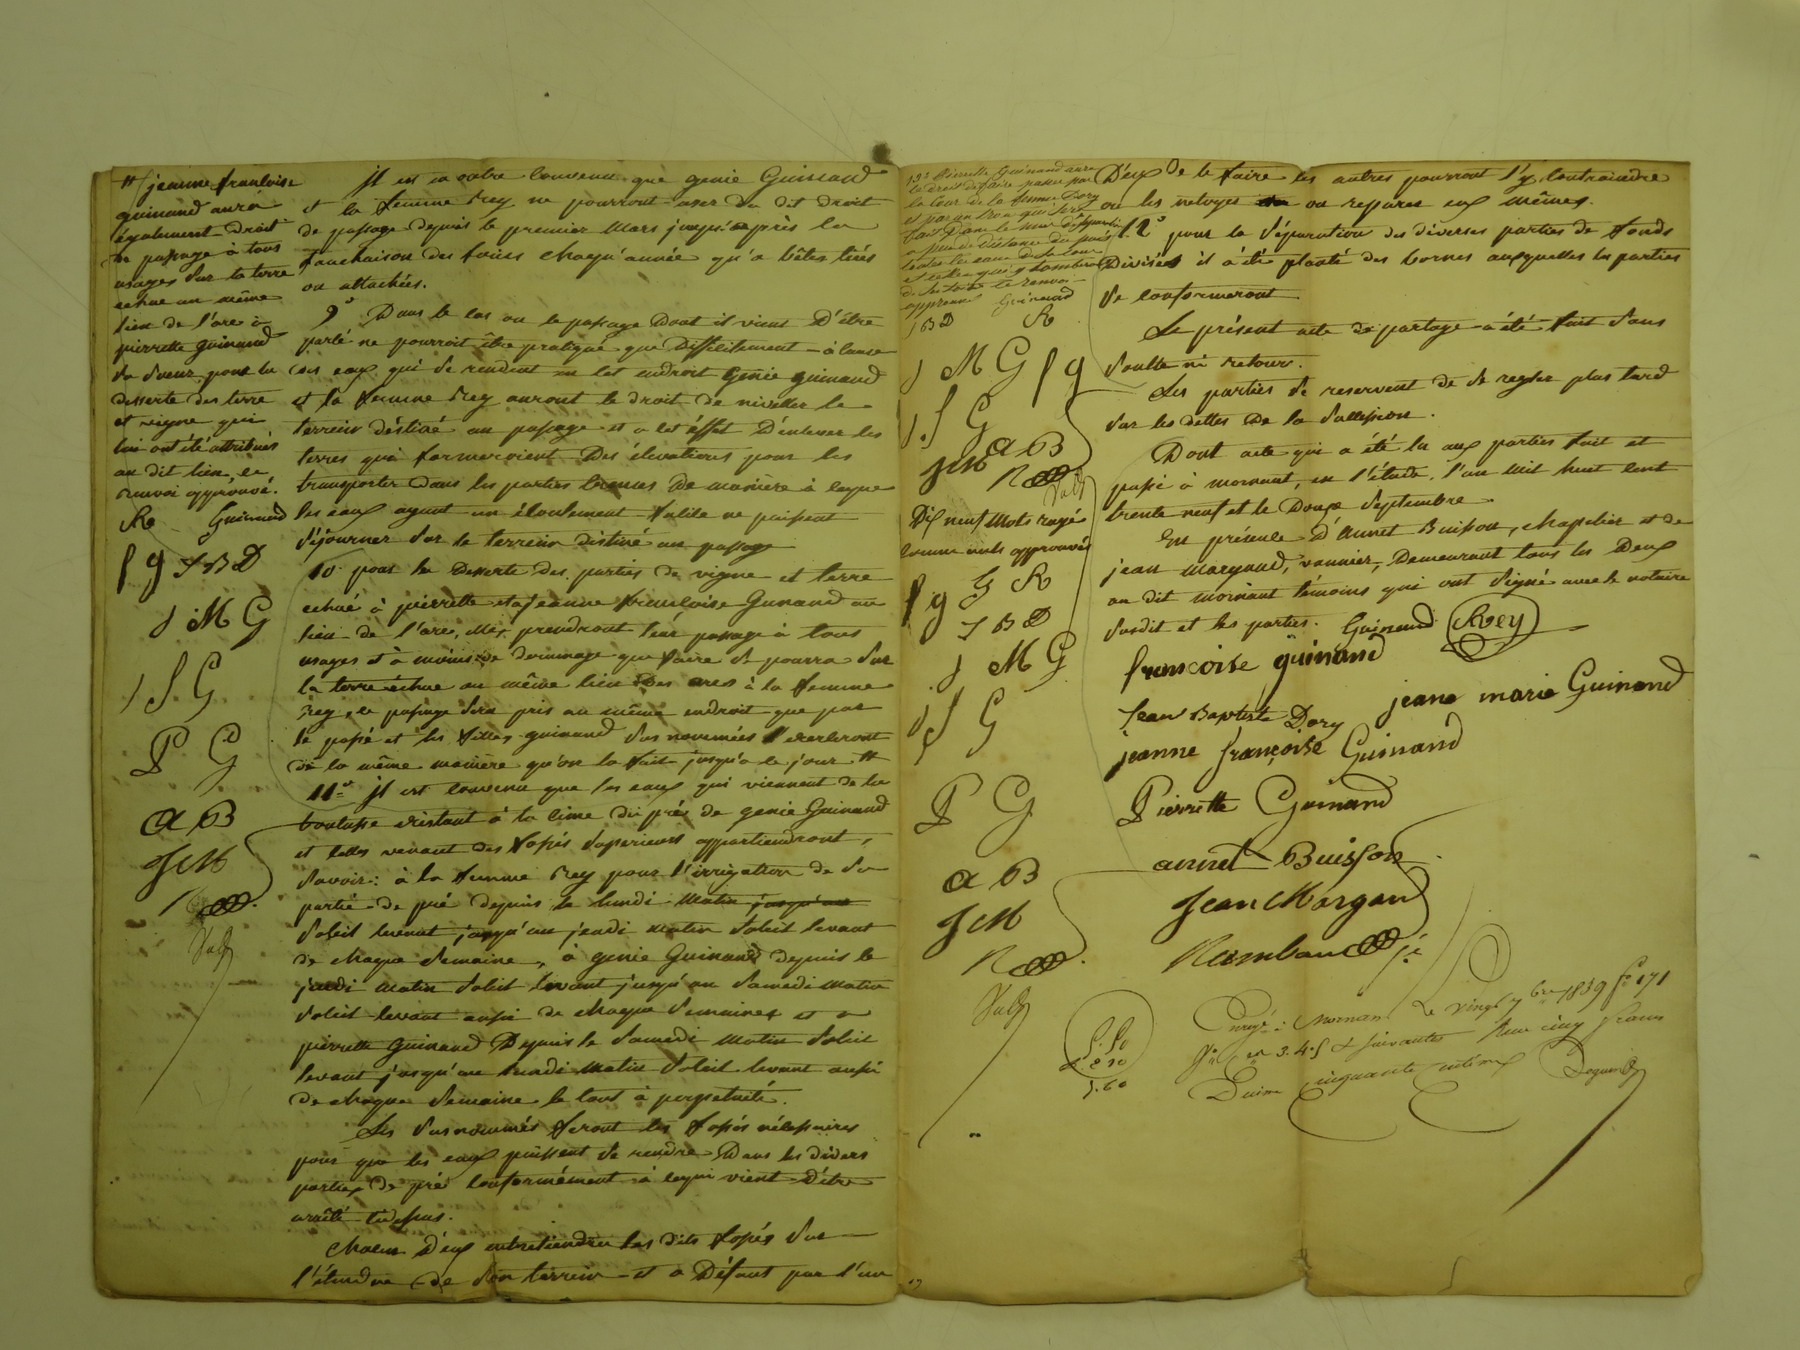 # jeanne françoise
guinand aura
également droit
de passage à tous
usages sur la terre
echue au même
lieu de l'are à
pierrette guinand
sa soeur, pour la
desserte des terre
et vigne qui
lui ont été attribués
au dit lieu, le
renvoi approuvé.
R Guinand
f g J B D
J M G
J f G
P G
a B
J M
Il est en outre convenu que genie Guinand
et la femme Rey ne pourront user du dit droit
de passage depuis le premier Mars jusqu'après la
fauchaison des foins chaqu'année qu'a bêtes liées
ou attachées.
9° Dans le cas ou le passage dont il vient d'être
parlé ne pourroit être pratiqué que difficilement à cause
des eaux qui se rendent en cet endroit genie guinand
et la femme Rey auront le droit de niveller le
terrein destiné au passage et a cet éffet d'enlever les
terres qui formeroient des élevations pour les
transporter dans les parties creuses de manière à ceque
les eaux ayant un écoulement facile ne puissent
séjourner sur le terrein destiné au passage
10° pour la desserte des parties de vigne et terre
echue à pierrette et a jeanne françoise Guinand au
lieu de l'are, elles prendront leur passage à tous
usages et à moins de dommage que faire se pourra sur
la terre échue au même lieu des ares à la femme
Rey, le passage sera pris au même endroit que par
le passé et les filles guinand sus nommées l'exerceront
de la même manière qu'on la fait jusqu'a ce jour #
11° Il est convenu que les eaux qui viennent de la
boutasse existant à la cime du pré de genie Guinand
et celles venant des fossés superieurs appartiendront,
savoir: à la femme Rey pour l'irrigation de sa
partie de pré depuis le lundi matin jusqu'au
soleil levant jusqu'au jeudi matin soleil levant
de chaque semaine, à genie Guinand depuis le
jeudi matin soleil levant jusqu'au samedi matin
soleil levant aussi de chaque semaines et a
pierrette guinand depuis le samedi matin soleil
levant jusqu'au lundi matin soleil levant aussi
de chaque semaine le tout à perpetuité.
Les susnommés feront les fossés nécessaires
pour que les eaux puissent se rendre dans les divers
parties de pré conformément à cequi vient d'être
arrêté ci dessus.
chacun d'eux entretiendra les dits fossés sur
l'étendue de son terrein et a défaut par l'un
13° Pierrette Guinand aura
le droit de faire passer par
la cour de la femme Dory
et par un trou qui sera
fait dans le mur
peu de distance du puis
toutes les eaux de la cour
et celles qui y tombent
des toits le renvoi
approuvé Guinand
J B D R
J M G f g
J f G
a B
J M
Dix neuf mots rayés
comme nuls approuvés
f g G R
J B D
J M G
J f G
P G
a B
J M
D'eux de le faire les autres pourront l'y contraindre
ou les netoyer ou reparer eux mêmes.
12° pour la séparation des diverses parties de fonds
divisées il a été planté des bornes auxquelles les parties
se conformeront.
Le présent acte de partage a été fait sans
soulte ni retour.
Les parties se reservent de se regler plus tard
sur les dettes de la succession.
Dont acte qui a été lu aux parties fait et
passé à mornant, en l'étude, l'an mil huit cent
trente neuf et le douze septembre
En présence d'annet Buisson, chapelier et de
jean margand, vannier, demeurant tous les deux
au dit mornant témoins qui ont signé avec le notaire
susdit et les parties. Guinand Rey
françoise guinand
jeane marie Guinand
Jean Baptiste Dory
jeanne françoise Guinand
Pierrette Guinand
annet Buisson
Jean Margand
Rambaud
5.50
5.60
Enregé à Mornant le vingt 7bre 1839 f° 171
3. 4. 5 & suivantes Reçu cinq francs
Decime cinquante centimes